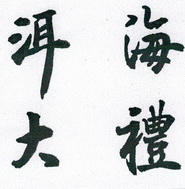 海禮
洱大